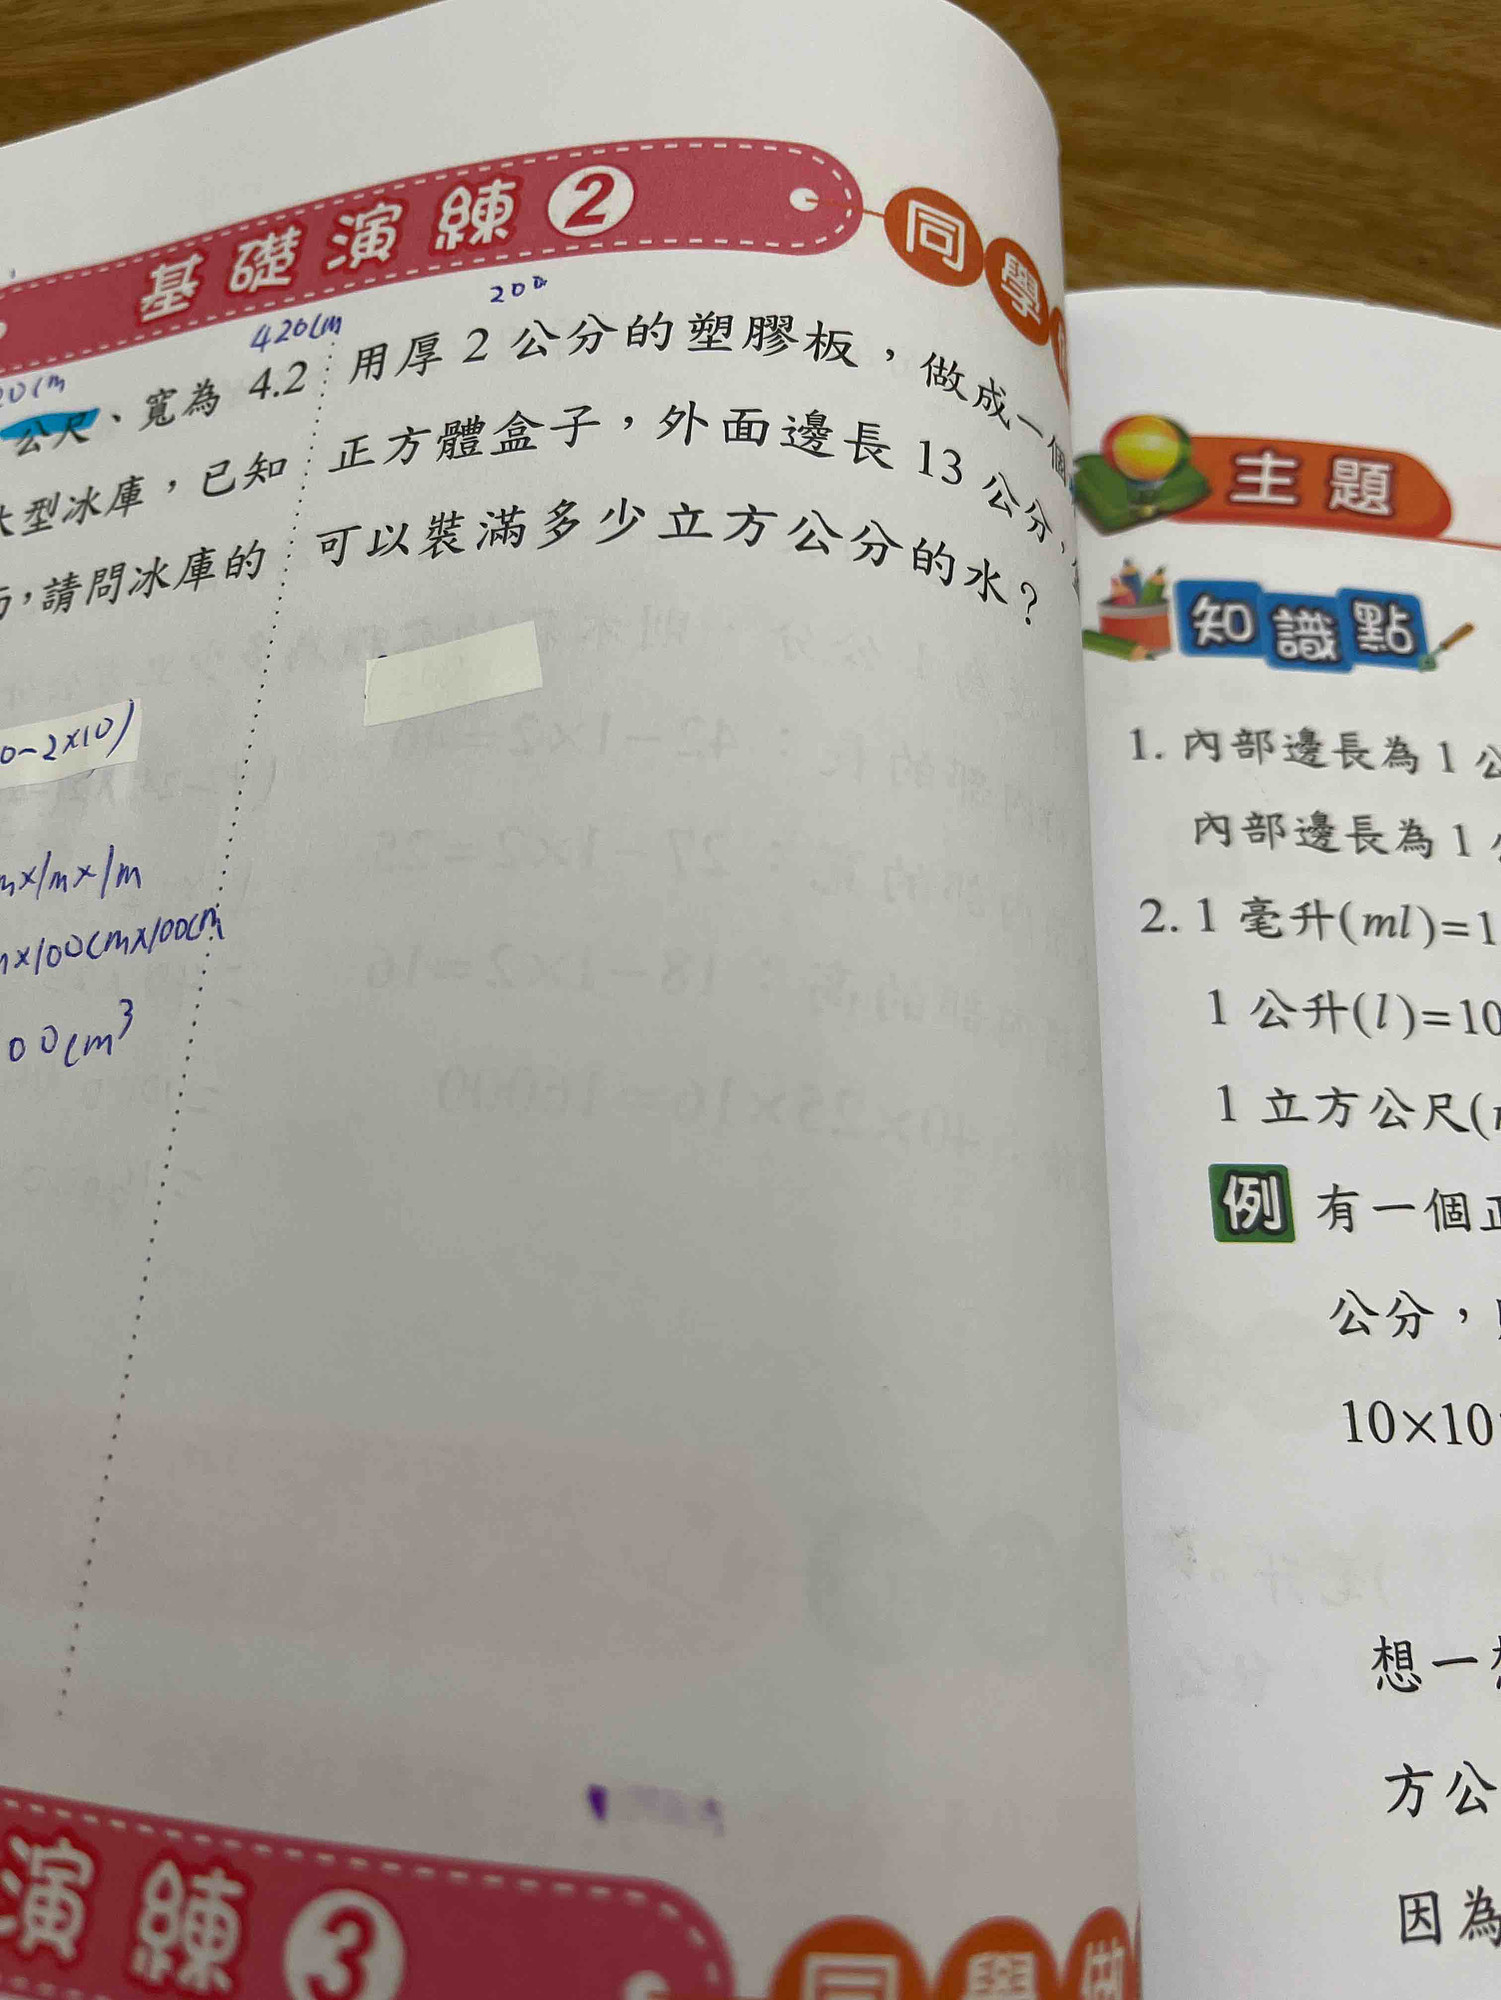 基礎演練2
同學
200
420cm
20cm
公尺、寬為 4.2
大型冰庫，已知
請問冰庫的
0-2×10)
m×1m×1m
m×100cm×100cm
00cm³
用厚 2 公分的塑膠板，做成一個
正方體盒子，外面邊長 13 公分，
可以裝滿多少立方公分的水？
演練3
同學做
主題
知識點
1. 內部邊長為 1 公
內部邊長為 1
2. 1 毫升(ml)=1
1 公升(l)=10
1 立方公尺(
例 有一個正
公分，
10×10
想一想
方公
因為